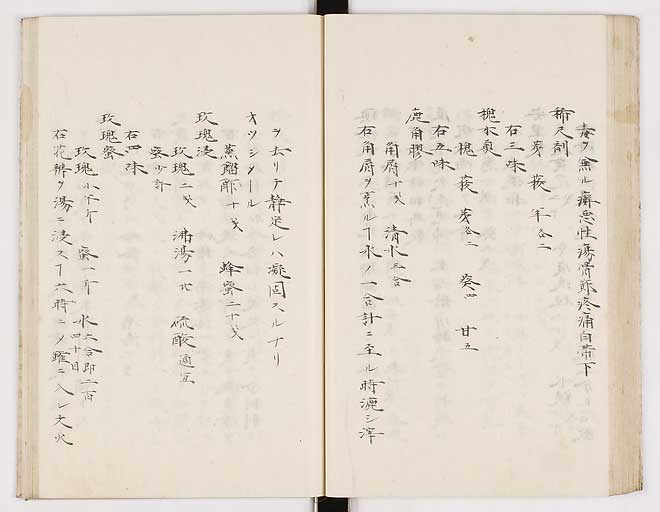 毒ヲ無ル癬悪性瘍骨節疼痛白帯下
稀尺剤
麦 莢 半 各二
右三味
槐木煎
槐 莢 麦各二 葵四 甘五
右五味
鹿角膠
角屑十戈 清水三合
右角屑ヲ煮ルヿ水ノ一合計ニ至ル時漉シ滓
ヲ去リテ静定レハ凝固スルナリ
オツシメール
蒸餾酢十戈 蜂蜜二十戈
玫瑰浸
玫瑰二戈 沸湯一 硫酸適宜
蜜少計
右四味
玫瑰蜜
玫瑰 蜜一斤 水六合即二百四十目
右花瓣ヲ湯ニ浸スヿ六時ニノ罐ニ入レ文火